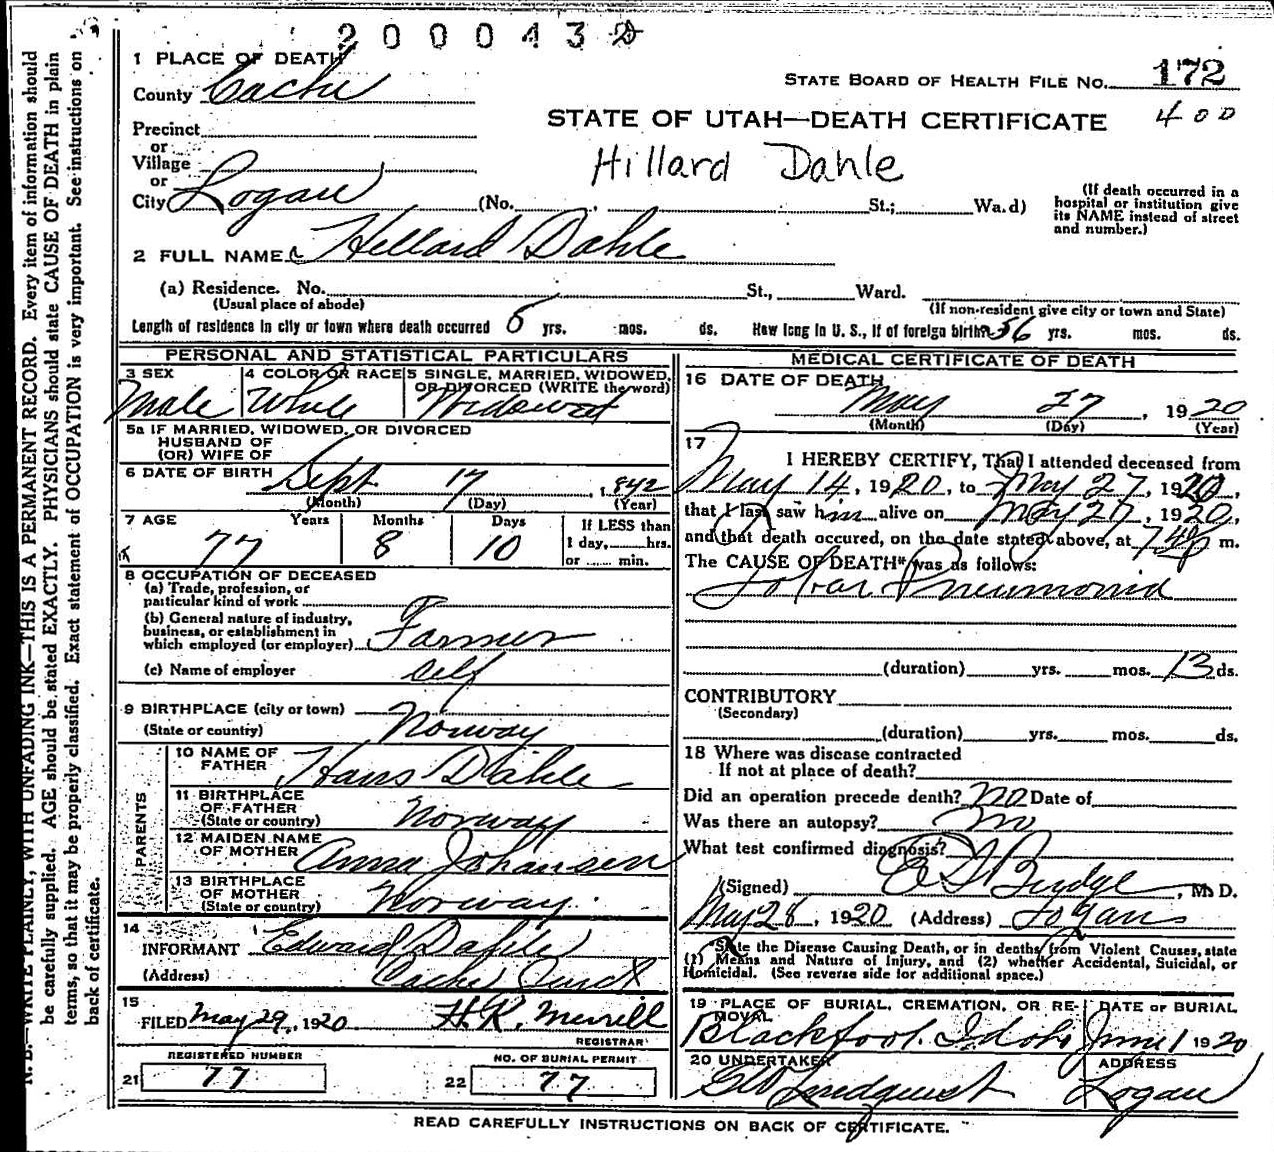 2000432
1 PLACE OF DEATH
County Cache
STATE BOARD OF HEALTH FILE No. 172
Precinct
or
STATE OF UTAH—DEATH CERTIFICATE 400
Village
or
Hillard Dahle
City Logan (No. St.; Wa.d)
(If death occurred in a hospital or institution give its NAME instead of street and number.)
2 FULL NAME Hellard Dahle
(a) Residence. No. St., Ward.
(Usual place of abode) (If non-resident give city or town and State)
Length of residence in city or town where death occurred 5 yrs. mos. ds. How long in U. S., if of foreign birth? 56 yrs. mos. ds.
PERSONAL AND STATISTICAL PARTICULARS
3 SEX 4 COLOR OR RACE 5 SINGLE, MARRIED, WIDOWED, OR DIVORCED (WRITE the word)
Male White Widowed
5a IF MARRIED, WIDOWED, OR DIVORCED
HUSBAND OF
(OR) WIFE OF
6 DATE OF BIRTH Sept 17, 1842
(Month) (Day) (Year)
7 AGE Years Months Days If LESS than
77 8 10 1 day, hrs.
or min.
8 OCCUPATION OF DECEASED
(a) Trade, profession, or
particular kind of work
(b) General nature of industry,
business, or establishment in
which employed (or employer) Farmer
(c) Name of employer Self
9 BIRTHPLACE (city or town)
(State or country) Norway
PARENTS
10 NAME OF
FATHER Hans Dahle
11 BIRTHPLACE
OF FATHER
(State or country) Norway
12 MAIDEN NAME
OF MOTHER Anna Johansen
13 BIRTHPLACE
OF MOTHER
(State or country) Norway
14
INFORMANT Edward Dahle
(Address) Cache Junct
15
FILED May 29, 1920 H.R. Merrill
REGISTRAR
REGISTERED NUMBER NO. OF BURIAL PERMIT
21 77 22 77
MEDICAL CERTIFICATE OF DEATH
16 DATE OF DEATH
May 27, 1920
(Month) (Day) (Year)
17
I HEREBY CERTIFY, That I attended deceased from
May 14, 1920, to May 27, 1920,
that I last saw him alive on May 27, 1920,
and that death occured, on the date stated above, at m.
The CAUSE OF DEATH* was as follows:
Lobar Pneumonia
(duration) yrs. mos. 13 ds.
CONTRIBUTORY
(Secondary)
(duration) yrs. mos. ds.
18 Where was disease contracted
If not at place of death?
Did an operation precede death? no Date of
Was there an autopsy? no
What test confirmed diagnosis?
(Signed) Budge, M. D.
May 28, 1920 (Address) Logan
*State the Disease Causing Death, or in deaths from Violent Causes, state
(1) Means and Nature of Injury, and (2) whether Accidental, Suicidal, or
Homicidal. (See reverse side for additional space.)
19 PLACE OF BURIAL, CREMATION, OR RE- DATE OF BURIAL
MOVAL
Blackfoot. Idaho June 1 1920
20 UNDERTAKER ADDRESS
Lindquist Logan
READ CAREFULLY INSTRUCTIONS ON BACK OF CERTIFICATE.
N. B.—WRITE PLAINLY, WITH UNFADING INK—THIS IS A PERMANENT RECORD. Every item of information should
be carefully supplied. AGE should be stated EXACTLY. PHYSICIANS should state CAUSE OF DEATH in plain
terms, so that it may be properly classified. Exact statement of OCCUPATION is very important. See instructions on
back of certificate.